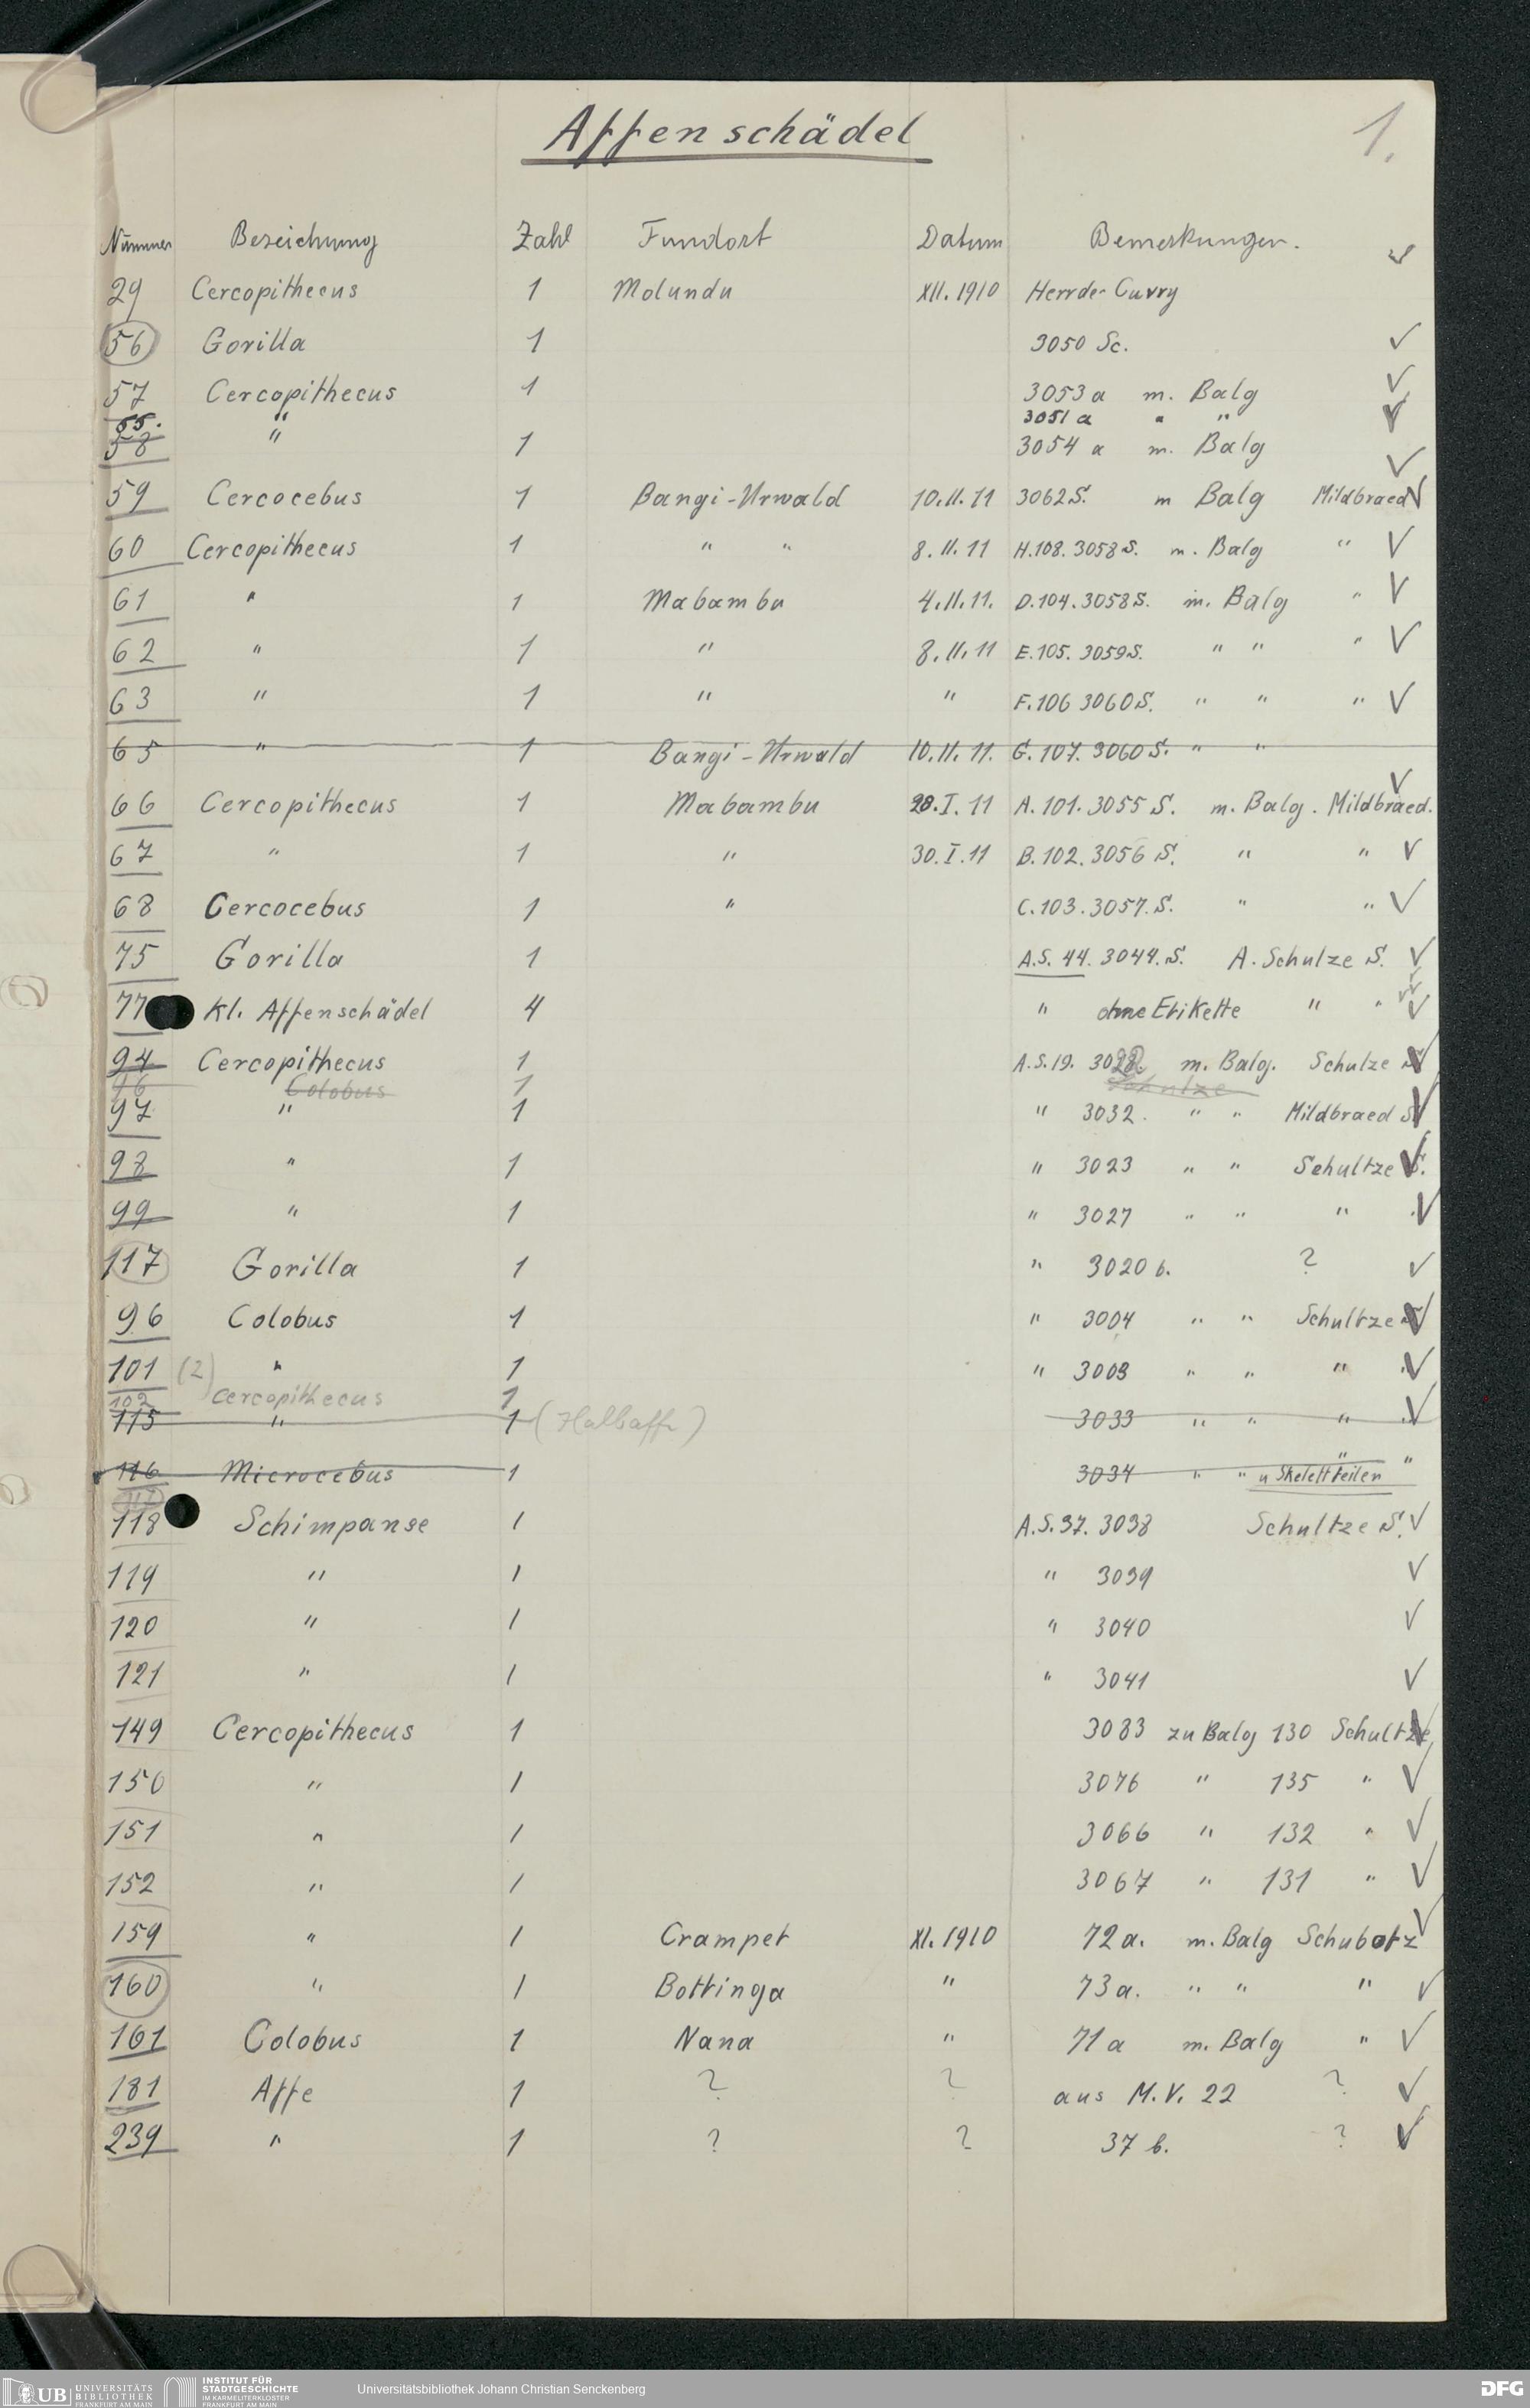 Affenschädel
1.
Nummer Bezeichnung Zahl Fundort Datum Bemerkungen.
29 Cercopithecus 1 Molundu XII. 1910 Herr de Cuvry
56 Gorilla 1 3050 Sc. ✓
57 Cercopithecus 1 3053 a m. Balg ✓
55. " 3051 a " " ✓
58 " 1 3054 a m. Balg ✓
59 Cercocebus 1 Bangi-Urwald 10.II.11 3062 S. m Balg Mildbraed ✓
60 Cercopithecus 1 " " 8.II.11 H.108. 3058 S. m. Balg " ✓
61 " 1 Mabambu 4.II.11. D.104. 3058 S. m. Balg " ✓
62 " 1 " 8.II.11 E.105. 3059 S. " " " ✓
63 " 1 " " F.106 3060 S. " " " ✓
65 " 1 Bangi-Urwald 10.II.11. G.107. 3060 S. " "
66 Cercopithecus 1 Mabambu 28.I.11 A.101. 3055 S. m. Balg. Mildbraed. ✓
67 " 1 " 30.I.11 B.102. 3056 S. " " ✓
68 Cercocebus 1 " C.103. 3057. S. " " ✓
75 Gorilla 1 A.S. 44. 3044. S. A. Schulze S. ✓
77 kl. Affenschädel 4 " ohne Etikette " " ✓
94 Cercopithecus 1 A.S.19. m. Balg. Schulze ✓
96 Colobus 1 Schulze
97 " 1 " 3032. " " Mildbraed S ✓
98 " 1 " 3023 " " Schultze S. ✓
99 " 1 " 3027 " " " ✓
117 Gorilla 1 " 3020 b. ? ✓
96 Colobus 1 " 3004 " " Schultze ✓
101 (2) " 1 " 3003 " " " ✓
102 Cercopithecus 1
115 " 1 (Halbaffe) 3033 " " " ✓
116 Microcebus 1 3034 " " u Skelettteilen " "
117
118 Schimpanse 1 A.S.37. 3038 Schultze S. ✓
119 " 1 " 3039 ✓
120 " 1 " 3040 ✓
121 " 1 " 3041 ✓
149 Cercopithecus 1 3083 zu Balg 130 Schultze ✓
150 " 1 3076 " 135 " ✓
151 " 1 3066 " 132 " ✓
152 " 1 3067 " 131 " ✓
159 " 1 Crampet XI. 1910 72 a. m. Balg Schubotz ✓
160 " 1 Bottinga " 73 a. " " " ✓
161 Colobus 1 Nana " 71 a m. Balg " ✓
181 Affe 1 ? ? aus M.V. 22 ? ✓
239 " 1 ? ? 37 b. ? ✓
UB UNIVERSITÄTS BIBLIOTHEK FRANKFURT AM MAIN
INSTITUT FÜR STADTGESCHICHTE IM KARMELITERKLOSTER FRANKFURT AM MAIN
Universitätsbibliothek Johann Christian Senckenberg
DFG